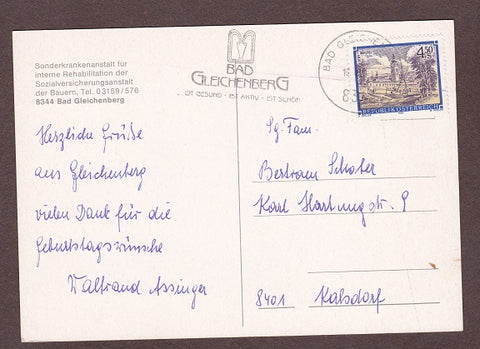 Sonderkrankenanstalt für
interne Rehabilitation der
Sozialversicherungsanstalt
der Bauern, Tel. 03159/576
8344 Bad Gleichenberg
BAD
GLEICHENBERG
IST GESUND · IST AKTIV · IST SCHÖN
BAD GLEICHE
4.50
S
REPUBLIK ÖSTERREICH
Herzliche Grüße
aus Gleichenberg
vielen Dank für die
Geburtstagswünsche
Waltraud Assinger
Sg. Fam.
Bertram Schober
Karl Hartungstr. 9
8401 Kalsdorf